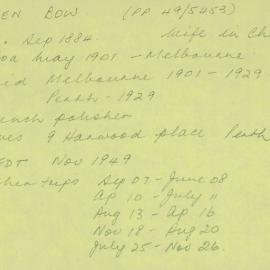 EN BOW (PP 49/5453)
. Sep 1884. Wife in Ch
oa May 1901 - Melbourne
id Melbourne 1901 - 1929
Perth - 1929
ench polisher
es 9 Harwood place Perth
EDT Nov 1949
her trips Sep 07 - June 08
Ap 10 - July 11
Aug 13 - Ap 16
Nov 18 - Aug 20
July 25 - Nov 26.